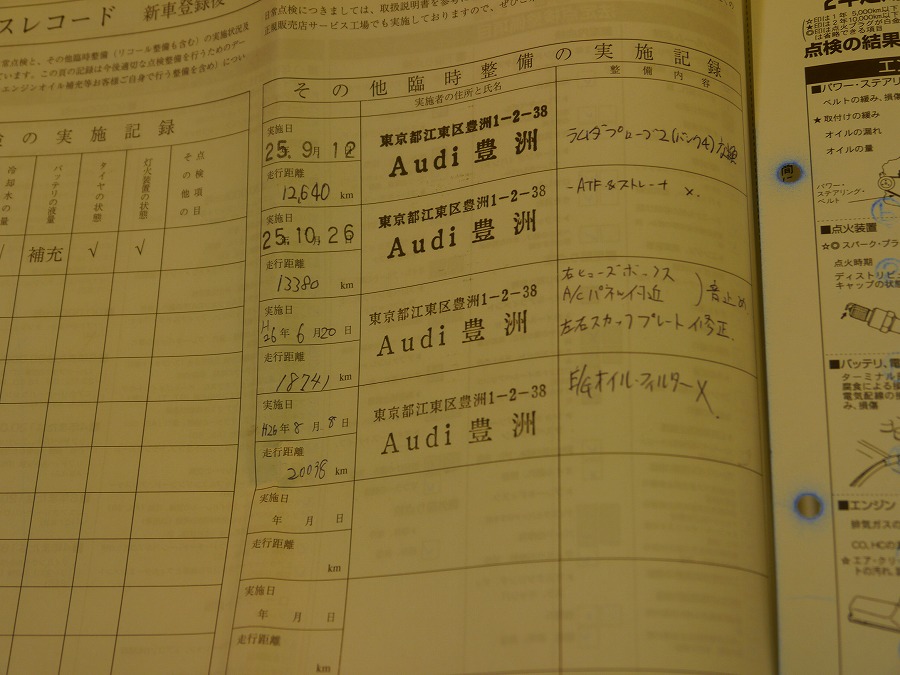 スレコード 新車登録後
常点検と、その他臨時整備(リコール整備も含む)の実施状況及
ています。この頁の記録は今後適切な点検整備を行うためのデー
エンジンオイル補充等お客様ご自身で行う整備を含め)につい
検の実施記録
冷却水の量
バッテリの液量
タイヤの状態
灯火装置の状態
その他の
点検項目
√ 補充 √ √
日常点検につきましては、取扱説明書を参考に
正規販売店サービス工場でも実施しておりますので、ぜひご
その他臨時整備の実施記録
実施者の住所と氏名
整備内容
実施日
25年9月12
走行距離
12,640 km
東京都江東区豊洲1-2-38
Audi 豊洲
ラムダプローブ2(バンク4)交換
実施日
25年10月26日
走行距離
13380 km
東京都江東区豊洲1-2-38
Audi 豊洲
-ATF &ストレーナ ×.
実施日
H26年6月20日
走行距離
18741 km
東京都江東区豊洲1-2-38
Audi 豊洲
右ヒューズボックス
A/Cパネル付近
)音止め
左右スカッフプレート修正.
実施日
H26年8月8日
走行距離
20038 km
東京都江東区豊洲1-2-38
Audi 豊洲
E/Gオイル・フィルターX.
実施日
年 月 日
走行距離
km
実施日
年 月 日
走行距離
km
2年
☆印は1年 5,000km以下
★印は2年10,000km以下
◎印は点火プラグが白金
は省略できる項目
点検の結果
エン
■パワー・ステアリ
ベルトの緩み、損傷
★ 取付けの緩み
オイルの漏れ
オイルの量
パワー・
ステアリング・
ベルト
■点火装置
☆◎ スパーク・プラ
点火時期
ディストリビュ
キャップの状態
■バッテリ、電
ターミナル
腐食による接
電気配線の接
み、損傷
■エンジン
排気ガスの
CO、HCの
★ エア・クリ
トの汚れ、